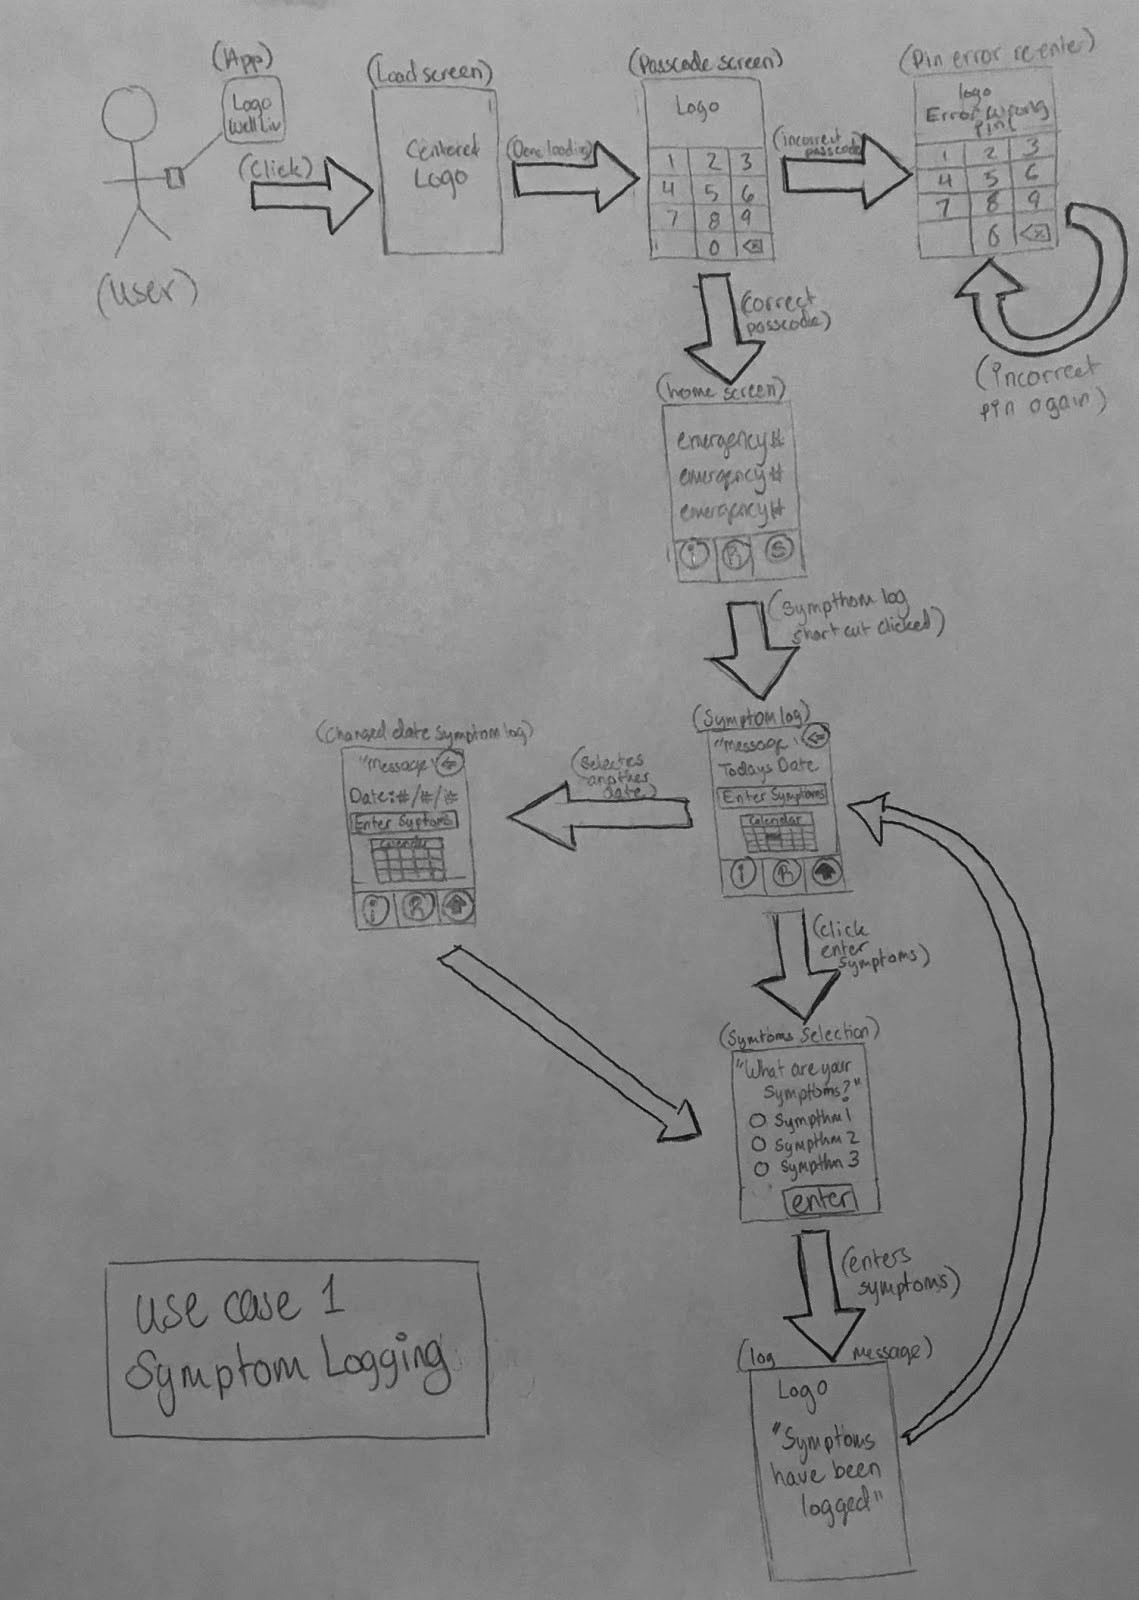 (App)
Logo
Well Liv
(User)
(Click)
(Load screen)
Centered
Logo
(Done loading)
(Passcode screen)
Logo
1 2 3
4 5 6
7 8 9
0
(incorrect
passcode)
(Pin error re-enter)
logo
Error Wrong
Pin!
1 2 3
4 5 6
7 8 9
0
(incorrect
pin again)
(Correct
passcode)
(home screen)
emergency#
emergency#
emergency#
i R S
(Sympthom log
short cut clicked)
(Symptom log)
"Message"
Todays Date
Enter Symptoms
Calendar
i R
(Selectes
another
date)
(Changed date symptom log)
"Message"
Date:#/#/#
Enter Syptoms
Calendar
i R
(Click
enter
symptoms)
(Symtoms Selection)
"What are your
Symptoms?"
Sympthm 1
Sympthm 2
Sympthm 3
enter
(enters
symptoms)
(log message)
Logo
"Symptoms
have been
logged"
Use case 1
Symptom Logging